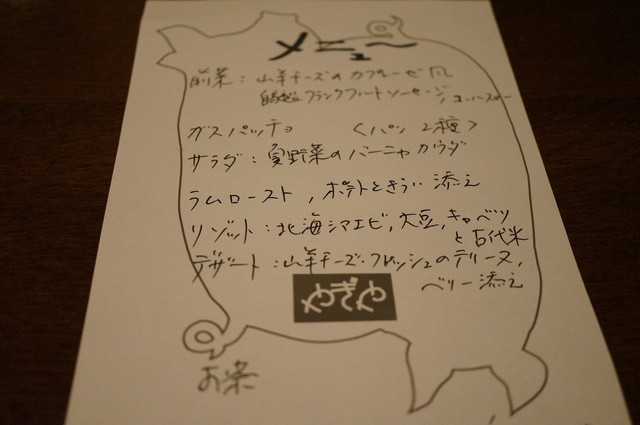 メニュ〜
前菜：山羊チーズのカプレーゼ風
自家製フランクフルトソーセージ
ガスパッチョ 〈パン 2種〉
サラダ：夏野菜のバーニャカウダ
ラムロースト，ポテトときうい 添え
リゾット：北海シマエビ，大豆，キャベツ
と古代米
デザート：山羊チーズ・フレッシュのテリーヌ，
ベリー添え
やぎや
お茶